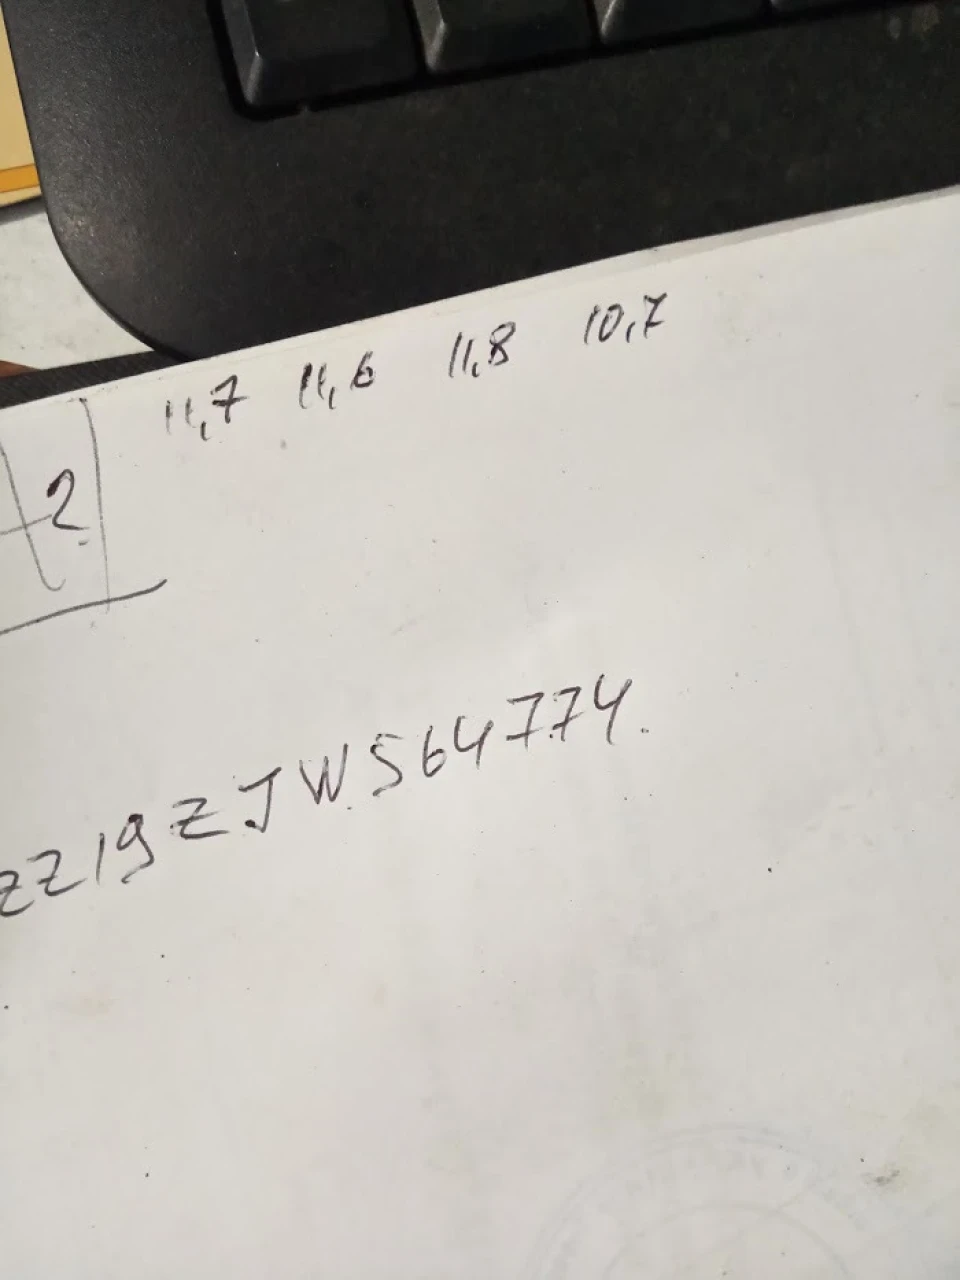 11,7 11,6 11,8 10,7
2
ZZ19ZJWS64774.